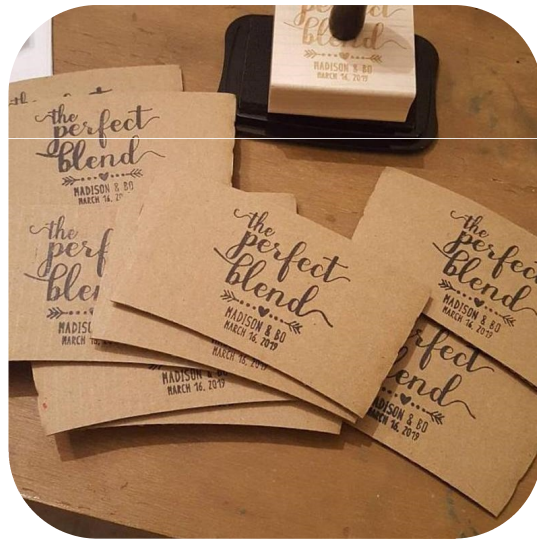 perfect
blend
MADISON & BO
MARCH 16, 2019
the
perfect
blend
MADISON & BO
MARCH 16, 20
the
perf
blen
MADIS
MARCH
the
perfect
blend
MADISON & BO
MARCH 16, 2019
the
perfec
blend
MADISON & BO
MARCH 16, 2019
rfect
end
MADISON & BO
MARCH 16, 2019
MADISON
MARCH 16, 2019